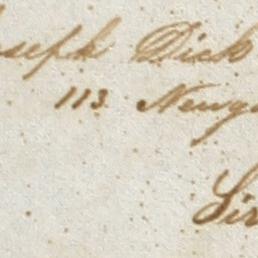 oseph Dick
113 Newga
Sir